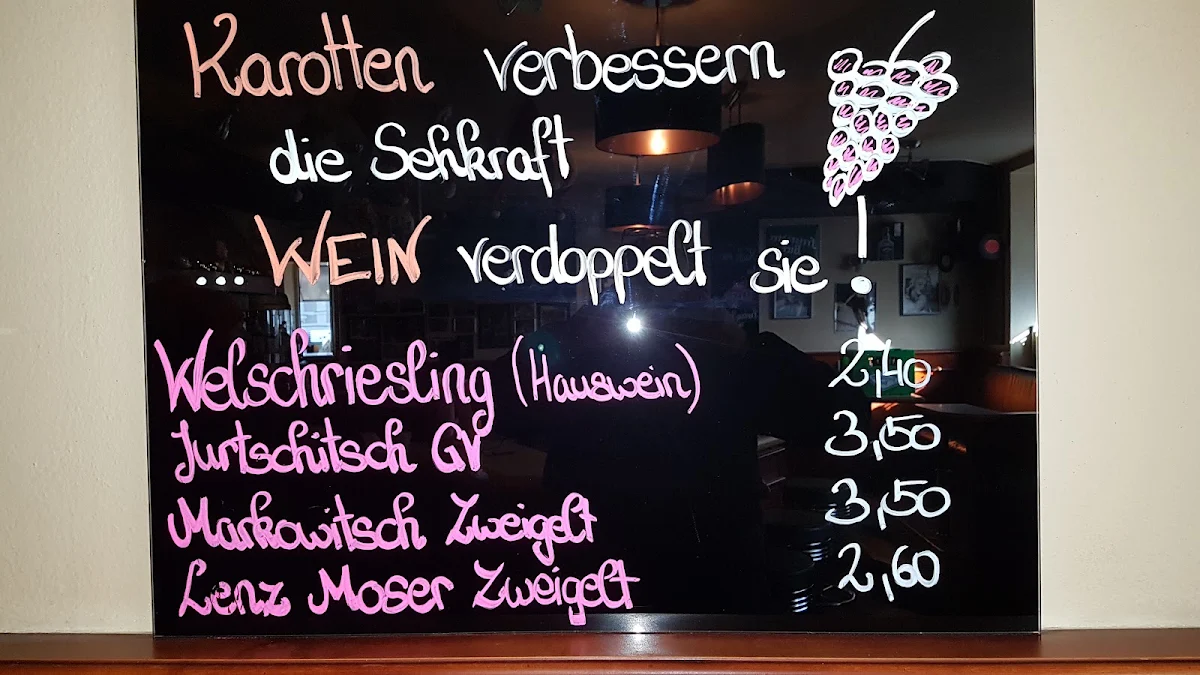 Karotten verbessern
die Sehkraft
WEIN verdoppelt sie!
Welschriesling (Hauswein) 2,40
Jurtschitsch GV 3,50
Markowitsch Zweigelt 3,50
Lenz Moser Zweigelt 2,60